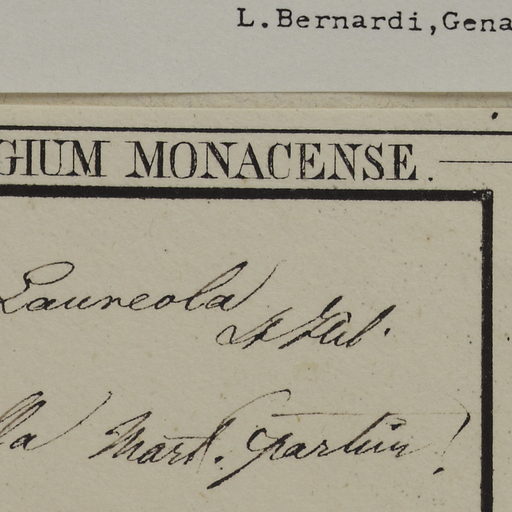 L.Bernardi,Gena
GIUM MONACENSE.
Laureola
St Hil.
lla Mart.